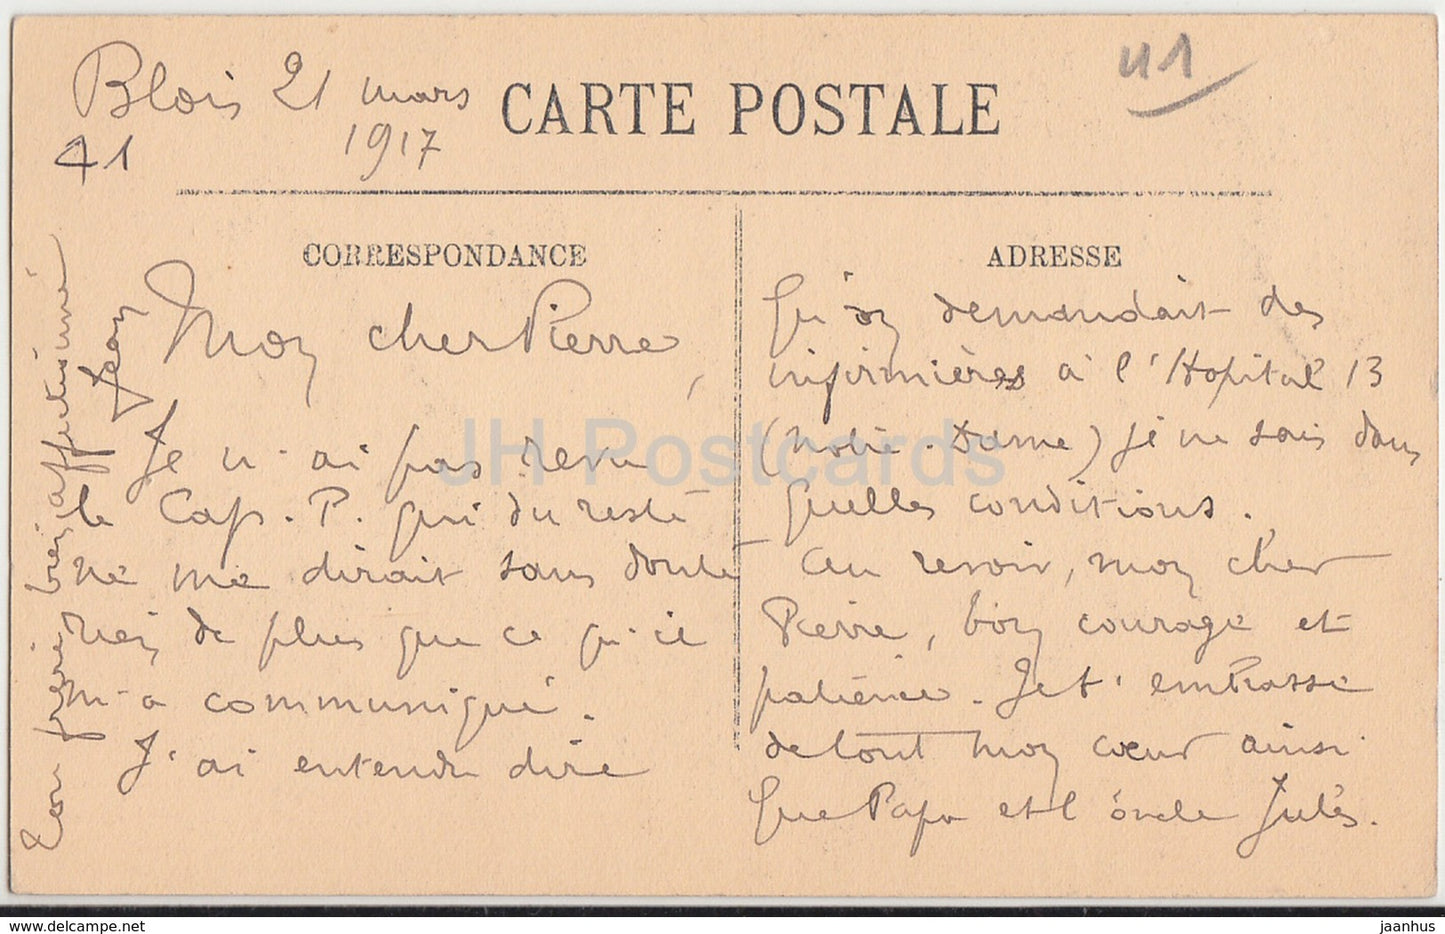 Blois 21 mars
1917
41
41
CARTE POSTALE
CORRESPONDANCE
Mon cher Pierre,
Je n'ai pas revu
le Cap. P. qui du reste
ne me dirait sans doute
rien de plus que ce qu'il
m'a communiqué.
J'ai entendu dire
ADRESSE
Qu'on demandait des
infirmières à l'Hopital 13
(Notre-Dame) je ne sais dans
quelles conditions.
Au revoir, mon cher
Pierre, bon courage et
patience. Je t'embrasse
de tout mon cœur ainsi
que Papa et l'oncle Jules.
Ton frère bien affectionné
Jean
JH Postcards
www.delcampe.net
jaanhus